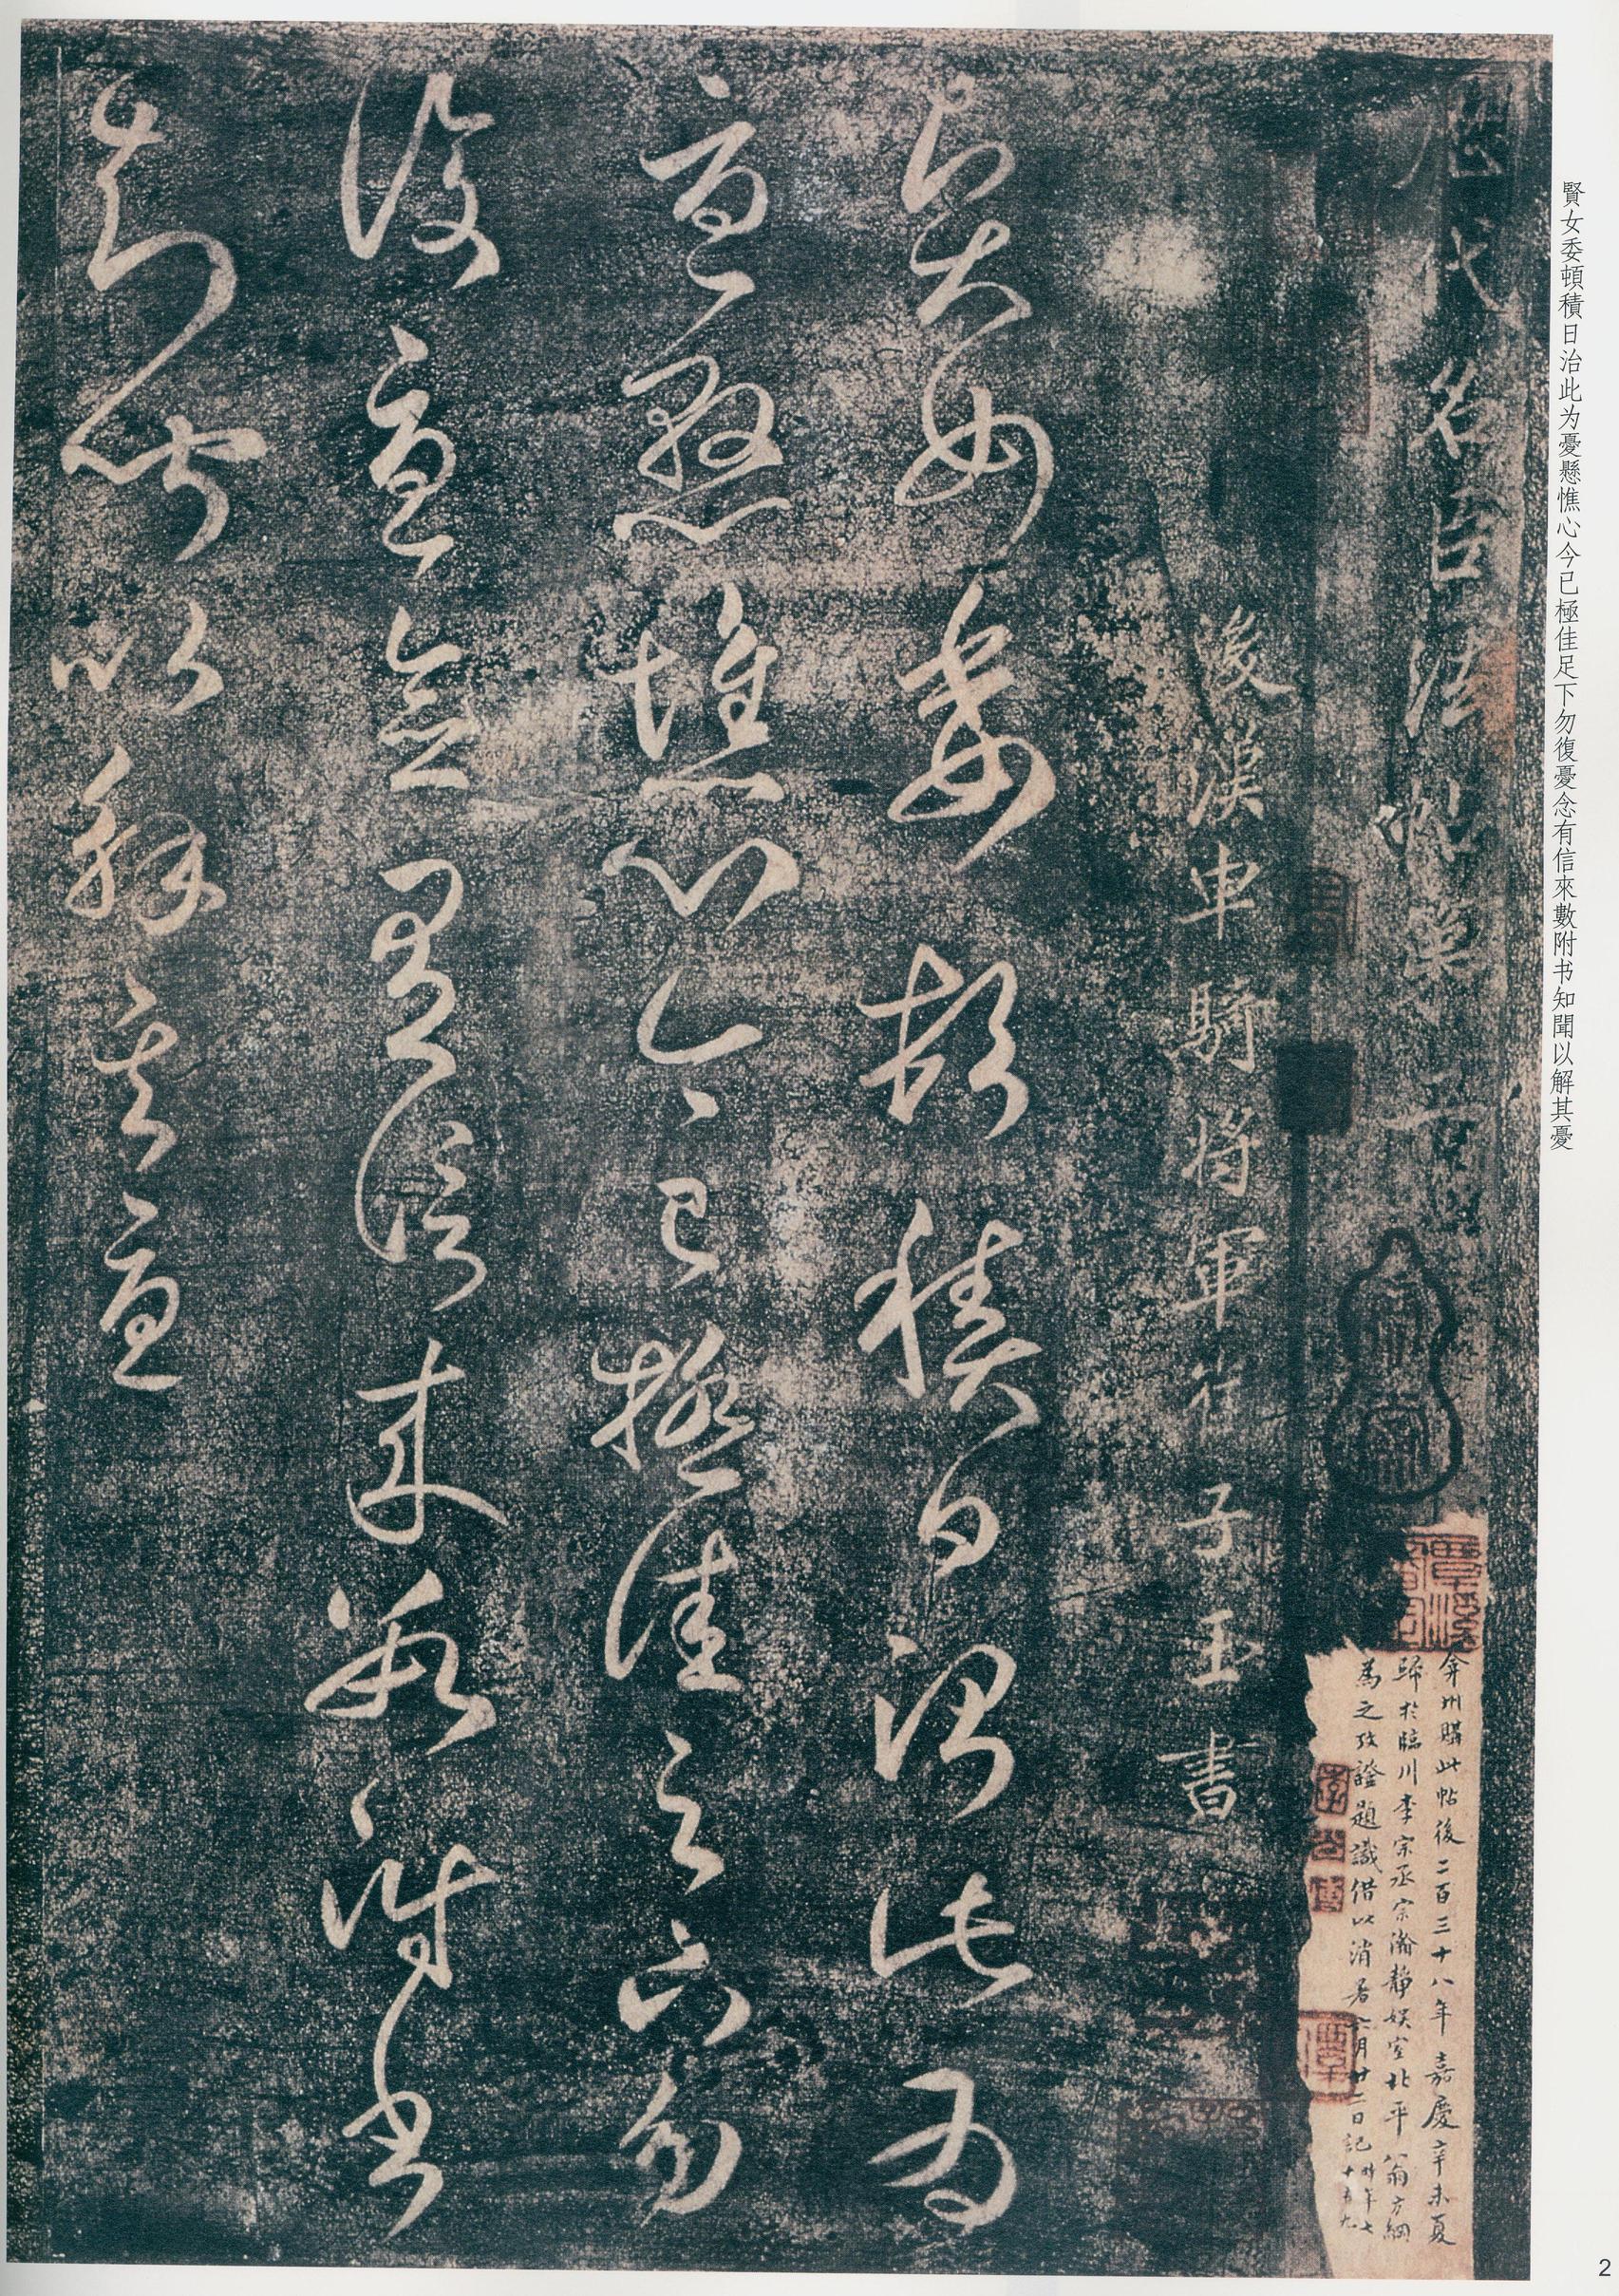 賢女委頓積日治此为憂懸憔心今已極佳足下勿復憂念有信來數附书知聞以解其憂
歷代名臣法帖第二
弇州購此帖後二百三十八年嘉慶辛未夏
歸於臨川李宗丞宗瀚靜娛室北平翁方綱
為之攷證題識借以消暑六月廿二日記時年七
十有九
後漢車騎將軍崔子玉書
賢女委頓積日治此為
憂懸憔心今已極佳足下勿
復憂念有信來數附書
知聞以解其憂
2